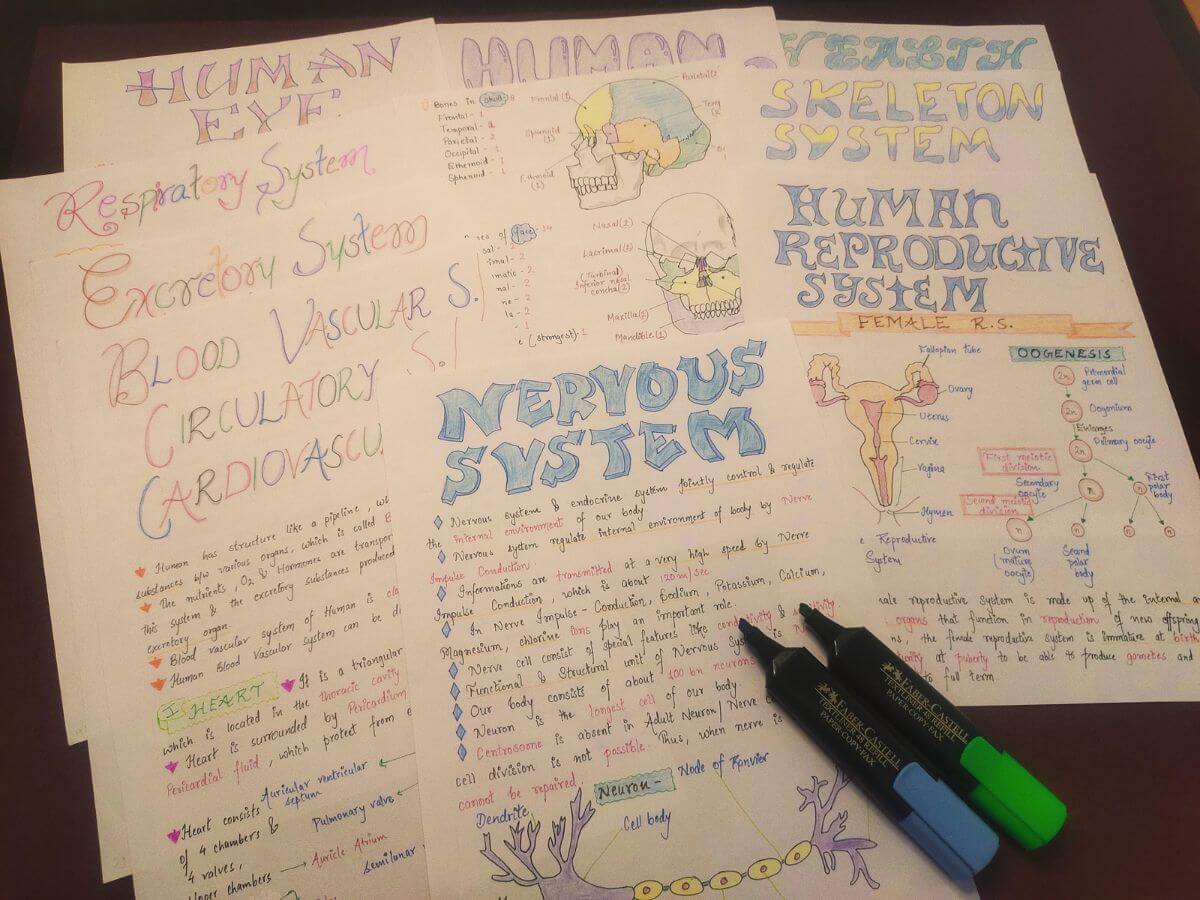 HUMAN
EYE
HUMAN
HEALTH
SKELETON
SYSTEM
Respiratory System
Excretory System
BLOOD VASCULAR S./
CIRCULATORY S./
CARDIOVASCU
Human has structure like a pipeline,
substances b/w various organs, which is called
The nutrients, O2 & Hormones are transpor
this system & the excretory substances produced
excretory organ.
Blood vascular system of Human is
Human Blood Vascular system can be
I HEART
It is a triangular
which is located in the thoracic cavity
Heart is surrounded by Pericardium
Pericardial fluid, which protect from
Heart consists
of 4 chambers &
4 valves,
Upper chambers
Auricular ventricular
septum
Pulmonary valve
Auricle Atrium
Semilunar
Bones in Skull - 8
Frontal - 1
Temporal - 2
Parietal - 2
Occipital - 1
Ethemoid - 1
Sphenoid - 1
Frontal(1)
Sphenoid
(1)
Ethmoid
(1)
Parietal(2
Temp
nes of face - 14
sal - 2
imal - 2
matic - 2
nal - 2
ne - 2
la - 2
- 1
e (strongest) - 1
Nasal(2)
Lacrimal(2)
(Turbinal)
Inferior nasal
concha(2)
Maxilla(2)
Mandible(1)
NERVOUS
SYSTEM
Nervous system & endocrine system jointly control & regulate
the internal environment of our body
Nervous system regulate internal environment of body by Nerve
Impulse Conduction.
Informations are transmitted at a very high speed by Nerve
Impulse Conduction, which is about 120m/sec.
In Nerve Impulse - Conduction, Sodium, Potassium, Calcium,
Magnesium, chlorine ions play an important role.
Nerve cell consist of special features like conductivity &
Functional & Structural unit of Nervous System is
Our body consists of about 100 bn neurons
Neuron is the longest cell of our body
Centrosome is absent in Adult Neuron/Nerve
cell division is not possible. Thus, when nerve is
cannot be repaired
Neuron-
Node of Ranvier
Dendrite
Cell body
HUMAN
REPRODUCTIVE
SYSTEM
FEMALE R.S.
Fallopian tube
Ovary
Uterus
Cervix
Vagina
Hymen
e Reproductive
System
OOGENESIS
2n Primordial
germ cell
2n Oogonium
Enlarges
2n Primary oocyte
First meiotic
division
Secondary
oocyte
n
n
First
polar
body
Second meiotic
division
n
n
n
n
Ovum
(mature
oocyte)
Second
polar
body
male reproductive system is made up of the internal
organs that function in reproduction of new offspring
ns, the female reproductive system is immature at birth
at puberty to be able to produce gametes and
to full term
FABER-CASTELL
TEXTLINER 48 REFILL
PAPER·COPY·FAX
FABER-CASTELL
TEXTLINER 48 REFILL
PAPER·COPY·FAX